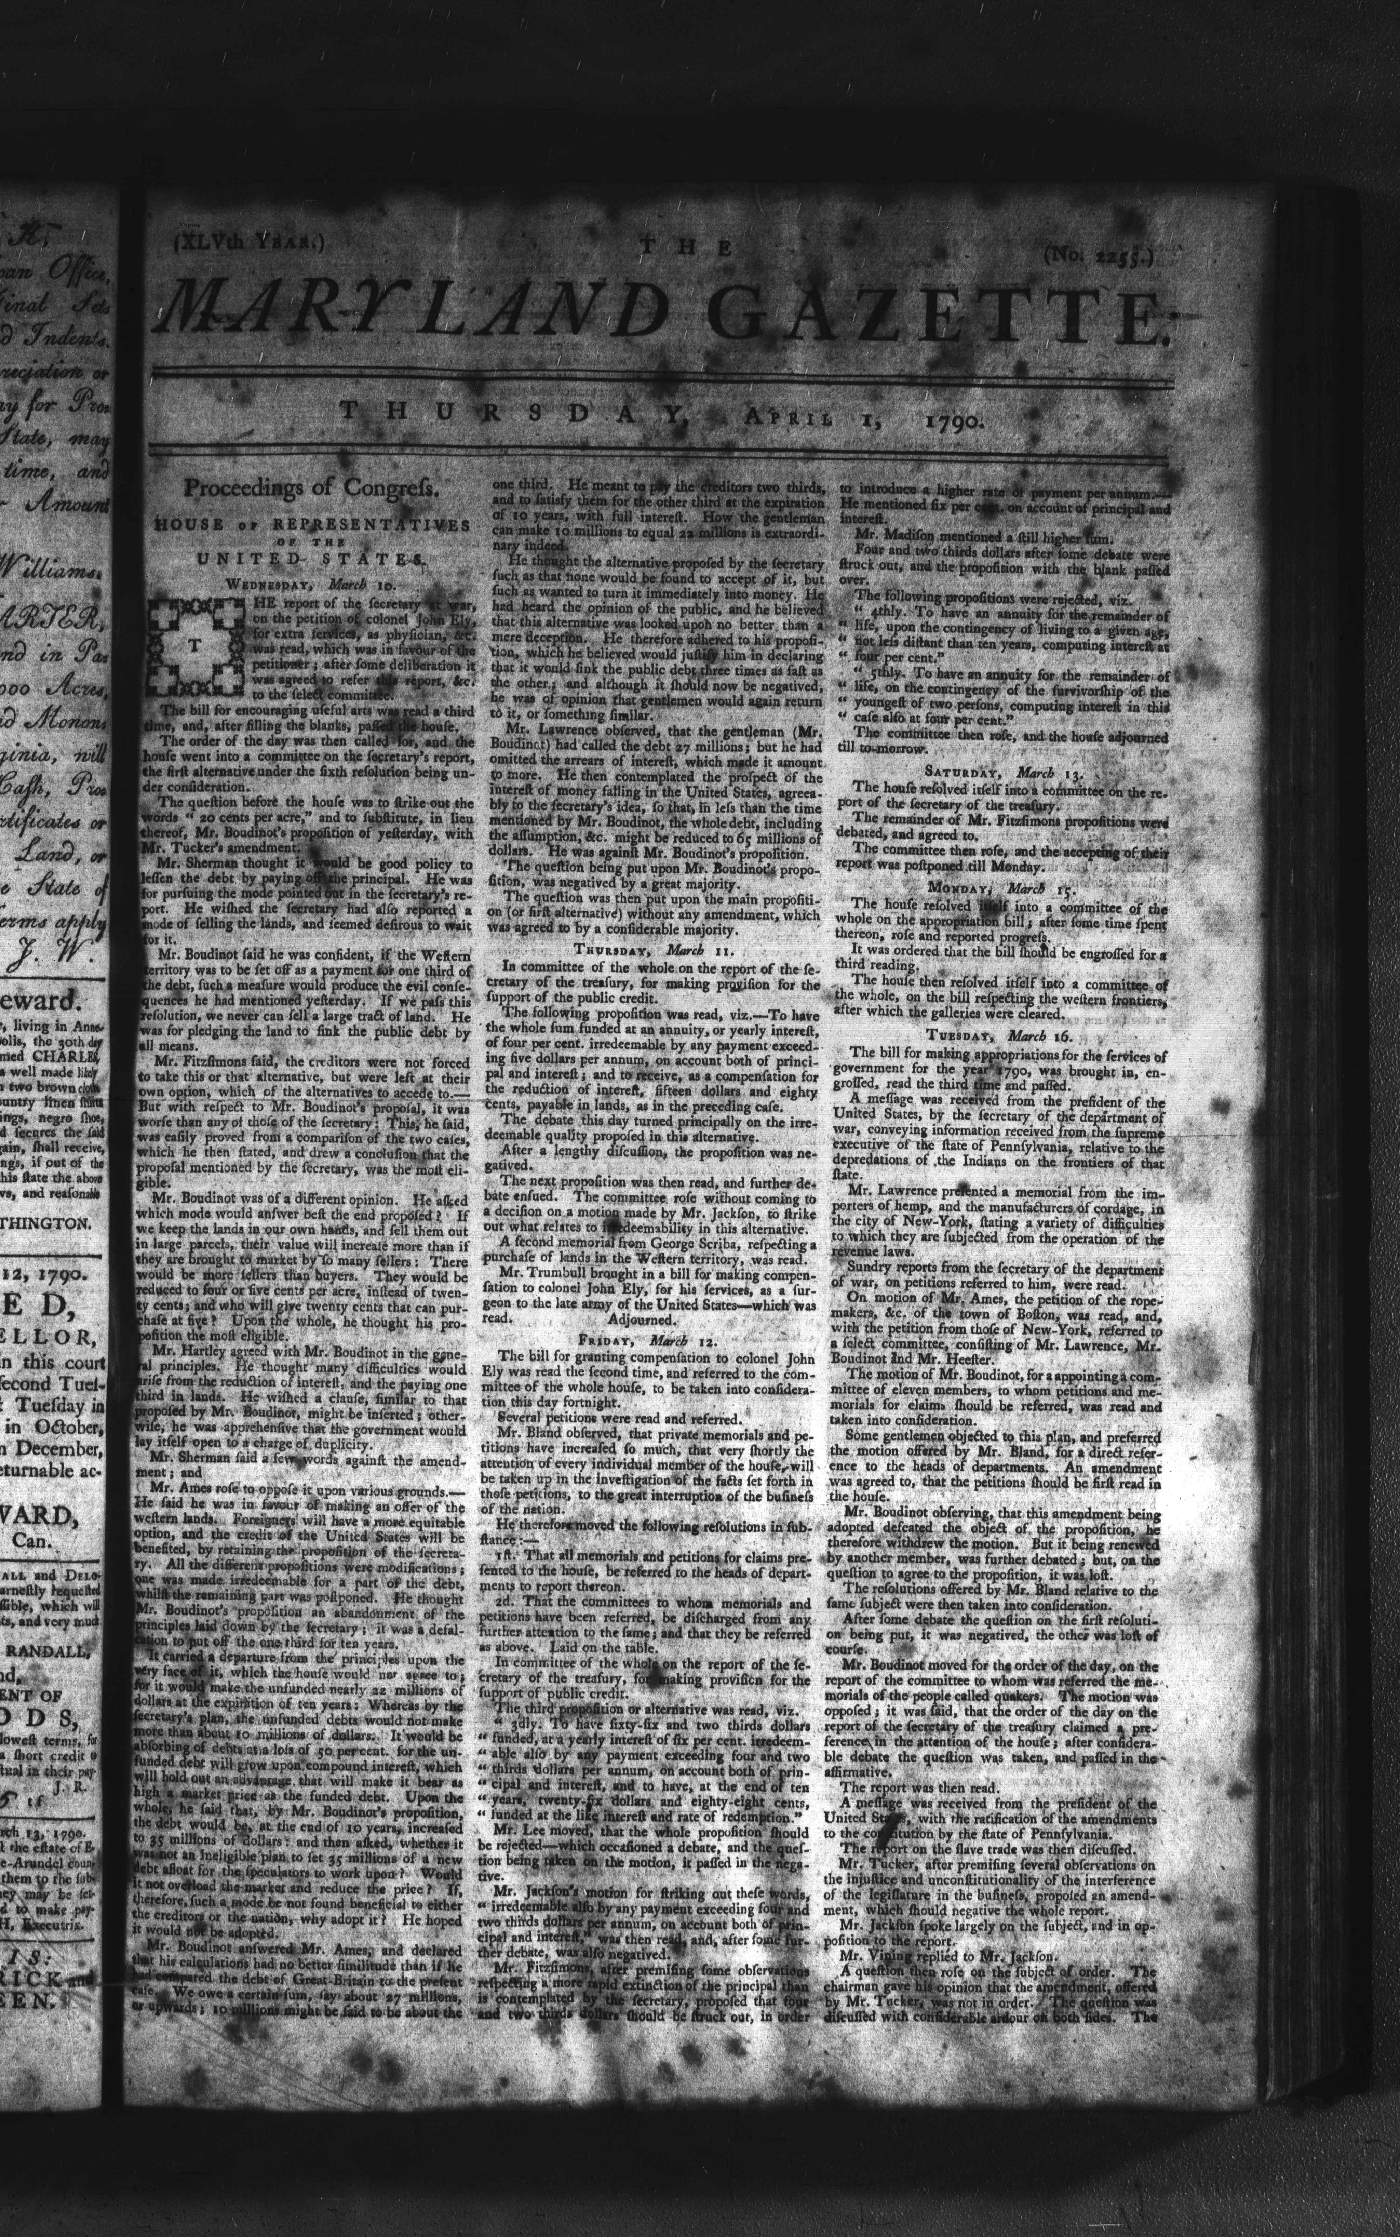 (XLVth YEAR.)
THE
(No. 2255.)
MARYLAND GAZETTE.
THURSDAY, APRIL 1, 1790.
Proceedings of Congreſs.
HOUSE OF REPRESENTATIVES
OF THE
UNITED STATES.
WEDNESDAY, March 10.
THE report of the ſecretary at war,
on the petition of colonel John Ely,
for extra ſervices, as phyſician, &c.
was read, which was in favour of the
petitioner; after ſome deliberation it
was agreed to refer this report, &c.
to the ſelect committee.
The bill for encouraging uſeful arts was read a third
time, and, after filling the blanks, paſſed the houſe.
The order of the day was then called for, and the
houſe went into a committee on the ſecretary's report,
the firſt alternative under the ſixth reſolution being un-
der conſideration.
The queſtion before the houſe was to ſtrike out the
words “ 20 cents per acre,” and to ſubſtitute, in lieu
thereof, Mr. Boudinot's propoſition of yeſterday, with
Mr. Tucker's amendment.
Mr. Sherman thought it would be good policy to
leſſen the debt by paying off the principal. He was
for purſuing the mode pointed out in the ſecretary's re-
port. He wiſhed the ſecretary had alſo reported a
mode of ſelling the lands, and ſeemed deſirous to wait
for it.
Mr. Boudinot ſaid he was confident, if the Weſtern
territory was to be ſet off as a payment for one third of
the debt, ſuch a meaſure would produce the evil conſe-
quences he had mentioned yeſterday. If we paſs this
reſolution, we never can ſell a large tract of land. He
was for pledging the land to ſink the public debt by
all means.
Mr. Fitzſimons ſaid, the creditors were not forced
to take this or that alternative, but were left at their
own option, which of the alternatives to accede to.—
But with reſpect to Mr. Boudinot's propoſal, it was
worſe than any of thoſe of the ſecretary: This, he ſaid,
was eaſily proved from a compariſon of the two caſes,
which he then ſtated, and drew a concluſion that the
propoſal mentioned by the ſecretary, was the moſt eli-
gible.
Mr. Boudinot was of a different opinion. He aſked
which mode would anſwer beſt the end propoſed? If
we keep the lands in our own hands, and ſell them out
in large parcels, their value will increaſe more than if
they are brought to market by ſo many ſellers: There
would be more ſellers than buyers. They would be
reduced to four or five cents per acre, inſtead of twen-
ty cents; and who will give twenty cents that can pur-
chaſe at five? Upon the whole, he thought his pro-
poſition the moſt eligible.
Mr. Hartley agreed with Mr. Boudinot in the gene-
ral principles. He thought many difficulties would
ariſe from the reduction of intereſt, and the paying one
third in lands. He wiſhed a clauſe, ſimilar to that
propoſed by Mr. Boudinot, might be inſerted; other-
wiſe, he was apprehenſive that the government would
lay itſelf open to a charge of duplicity.
Mr. Sherman ſaid a few words againſt the amend-
ment; and
Mr. Ames roſe to oppoſe it upon various grounds.—
He ſaid he was in favour of making an offer of the
weſtern lands. Foreigners will have a more equitable
option, and the credit of the United States will be
benefited, by retaining the propoſition of the ſecreta-
ry. All the different propoſitions were modifications;
one was made irredeemable for a part of the debt,
whilſt the remaining part was poſtponed. He thought
Mr. Boudinot's propoſition an abandonment of the
principles laid down by the ſecretary; it was a defal-
cation to put off the one third for ten years.
It carried a departure from the principles upon the
very face of it, which the houſe would not agree to;
for it would make the unfunded nearly 22 millions of
dollars at the expiration of ten years: Whereas by the
ſecretary's plan, the unfunded debts would not make
more than about 10 millions of dollars. It would be
abſorbing of debts at a loſs of 50 per cent. for the un-
funded debt will grow upon compound intereſt, which
will hold out an advantage that will make it bear as
high a market price as the funded debt. Upon the
whole, he ſaid that, by Mr. Boudinot's propoſition,
the debt would be, at the end of 10 years, increaſed
to 35 millions of dollars: and then aſked, whether it
was not an ineligible plan to ſet 35 millions of a new
debt afloat for the ſpeculators to work upon? Would
it not overload the market and reduce the price? If,
therefore, ſuch a mode be not found beneficial to either
the creditors or the nation, why adopt it? He hoped
it would not be adopted.
Mr. Boudinot anſwered Mr. Ames, and declared
that his calculations had no better ſimilitude than if he
had compared the debt of Great-Britain to the preſent
caſe. We owe a certain ſum, ſay about 27 millions,
or upwards; 10 millions might be ſaid to be about the
one third. He meant to pay the creditors two thirds,
and to ſatisfy them for the other third at the expiration
of 10 years, with full intereſt. How the gentleman
can make 10 millions to equal 22 millions is extraordi-
nary indeed.
He thought the alternative propoſed by the ſecretary
ſuch as that none would be found to accept of it, but
ſuch as wanted to turn it immediately into money. He
had heard the opinion of the public, and he believed
that this alternative was looked upon no better than a
mere deception. He therefore adhered to his propoſi-
tion, which he believed would juſtify him in declaring
that it would ſink the public debt three times as faſt as
the other; and although it ſhould now be negatived,
he was of opinion that gentlemen would again return
to it, or ſomething ſimilar.
Mr. Lawrence obſerved, that the gentleman (Mr.
Boudinot) had called the debt 27 millions; but he had
omitted the arrears of intereſt, which made it amount
to more. He then contemplated the proſpect of the
intereſt of money falling in the United States, agreea-
bly to the ſecretary's idea, ſo that, in leſs than the time
mentioned by Mr. Boudinot, the whole debt, including
the aſſumption, &c. might be reduced to 65 millions of
dollars. He was againſt Mr. Boudinot's propoſition.
The queſtion being put upon Mr. Boudinot's propo-
ſition, was negatived by a great majority.
The queſtion was then put upon the main propoſiti-
on (or firſt alternative) without any amendment, which
was agreed to by a conſiderable majority.
THURSDAY, March 11.
In committee of the whole on the report of the ſe-
cretary of the treaſury, for making proviſion for the
ſupport of the public credit.
The following propoſition was read, viz.—To have
the whole ſum funded at an annuity, or yearly intereſt,
of four per cent. irredeemable by any payment exceed-
ing five dollars per annum, on account both of princi-
pal and intereſt; and to receive, as a compenſation for
the reduction of intereſt, fifteen dollars and eighty
cents, payable in lands, as in the preceding caſe.
The debate this day turned principally on the irre-
deemable quality propoſed in this alternative.
After a lengthy diſcuſſion, the propoſition was ne-
gatived.
The next propoſition was then read, and further de-
bate enſued. The committee roſe without coming to
a deciſion on a motion made by Mr. Jackſon, to ſtrike
out what relates to irredeemability in this alternative.
A ſecond memorial from George Scriba, reſpecting a
purchaſe of lands in the Weſtern territory, was read.
Mr. Trumbull brought in a bill for making compen-
ſation to colonel John Ely, for his ſervices, as a ſur-
geon to the late army of the United States—which was
read. Adjourned.
FRIDAY, March 12.
The bill for granting compenſation to colonel John
Ely was read the ſecond time, and referred to the com-
mittee of the whole houſe, to be taken into conſidera-
tion this day fortnight.
Several petitions were read and referred.
Mr. Bland obſerved, that private memorials and pe-
titions have increaſed ſo much, that very ſhortly the
attention of every individual member of the houſe, will
be taken up in the inveſtigation of the facts ſet forth in
thoſe petitions, to the great interruption of the buſineſs
of the nation.
He therefore moved the following reſolutions in ſub-
ſtance:—
1ſt. That all memorials and petitions for claims pre-
ſented to the houſe, be referred to the heads of depart-
ments to report thereon.
2d. That the committees to whom memorials and
petitions have been referred, be diſcharged from any
further attention to the ſame; and that they be referred
as above. Laid on the table.
In committee of the whole on the report of the ſe-
cretary of the treaſury, for making proviſion for the
ſupport of public credit.
The third propoſition or alternative was read, viz.
“ 3dly. To have ſixty-ſix and two thirds dollars
“ funded, at a yearly intereſt of ſix per cent. irredeem-
“ able alſo by any payment exceeding four and two
“ thirds dollars per annum, on account both of prin-
“ cipal and intereſt, and to have, at the end of ten
“ years, twenty-ſix dollars and eighty-eight cents,
“ funded at the like intereſt and rate of redemption.”
Mr. Lee moved, that the whole propoſition ſhould
be rejected—which occaſioned a debate, and the queſ-
tion being taken on the motion, it paſſed in the nega-
tive.
Mr. Jackſon's motion for ſtriking out theſe words,
“ irredeemable alſo by any payment exceeding four and
two thirds dollars per annum, on account both of prin-
cipal and intereſt,” was then read, and, after ſome fur-
ther debate, was alſo negatived.
Mr. Fitzſimons, after premiſing ſome obſervations
reſpecting a more rapid extinction of the principal than
is contemplated by the ſecretary, propoſed that four
and two thirds dollars ſhould be ſtruck out, in order
to introduce a higher rate of payment per annum.—
He mentioned ſix per cent. on account of principal and
intereſt.
Mr. Madiſon mentioned a ſtill higher ſum.
Four and two thirds dollars after ſome debate were
ſtruck out, and the propoſition with the blank paſſed
over.
The following propoſitions were rejected, viz.
“ 4thly. To have an annuity for the remainder of
“ life, upon the contingency of living to a given age,
“ not leſs diſtant than ten years, computing intereſt at
“ four per cent.”
“ 5thly. To have an annuity for the remainder of
“ life, on the contingency of the ſurvivorſhip of the
“ youngeſt of two perſons, computing intereſt in this
“ caſe alſo at four per cent.”
The committee then roſe, and the houſe adjourned
till to-morrow.
SATURDAY, March 13.
The houſe reſolved itſelf into a committee on the re-
port of the ſecretary of the treaſury.
The remainder of Mr. Fitzſimons propoſitions were
debated, and agreed to.
The committee then roſe, and the accepting of their
report was poſtponed till Monday.
MONDAY, March 15.
The houſe reſolved itſelf into a committee of the
whole on the appropriation bill; after ſome time ſpent
thereon, roſe and reported progreſs.
It was ordered that the bill ſhould be engroſſed for a
third reading.
The houſe then reſolved itſelf into a committee of
the whole, on the bill reſpecting the weſtern frontiers,
after which the galleries were cleared.
TUESDAY, March 16.
The bill for making appropriations for the ſervices of
government for the year 1790, was brought in, en-
groſſed, read the third time and paſſed.
A meſſage was received from the preſident of the
United States, by the ſecretary of the department of
war, conveying information received from the ſupreme
executive of the ſtate of Pennſylvania, relative to the
depredations of the Indians on the frontiers of that
ſtate.
Mr. Lawrence preſented a memorial from the im-
porters of hemp, and the manufacturers of cordage, in
the city of New-York, ſtating a variety of difficulties
to which they are ſubjected from the operation of the
revenue laws.
Sundry reports from the ſecretary of the department
of war, on petitions referred to him, were read.
On motion of Mr. Ames, the petition of the rope-
makers, &c. of the town of Boſton, was read, and,
with the petition from thoſe of New-York, referred to
a ſelect committee, conſiſting of Mr. Lawrence, Mr.
Boudinot and Mr. Heeſter.
The motion of Mr. Boudinot, for a appointing a com-
mittee of eleven members, to whom petitions and me-
morials for claims ſhould be referred, was read and
taken into conſideration.
Some gentlemen objected to this plan, and preferred
the motion offered by Mr. Bland, for a direct refer-
ence to the heads of departments. An amendment
was agreed to, that the petitions ſhould be firſt read in
the houſe.
Mr. Boudinot obſerving, that this amendment being
adopted defeated the object of the propoſition, he
therefore withdrew the motion. But it being renewed
by another member, was further debated; but, on the
queſtion to agree to the propoſition, it was loſt.
The reſolutions offered by Mr. Bland relative to the
ſame ſubject were then taken into conſideration.
After ſome debate the queſtion on the firſt reſoluti-
on being put, it was negatived, the other was loſt of
courſe.
Mr. Boudinot moved for the order of the day, on the
report of the committee to whom was referred the me-
morials of the people called quakers. The motion was
oppoſed; it was ſaid, that the order of the day on the
report of the ſecretary of the treaſury claimed a pre-
ference in the attention of the houſe; after conſidera-
ble debate the queſtion was taken, and paſſed in the
affirmative.
The report was then read.
A meſſage was received from the preſident of the
United States, with the ratification of the amendments
to the conſtitution by the ſtate of Pennſylvania.
The report on the ſlave trade was then diſcuſſed.
Mr. Tucker, after premiſing ſeveral obſervations on
the injuſtice and unconſtitutionality of the interference
of the legiſlature in the buſineſs, propoſed an amend-
ment, which ſhould negative the whole report.
Mr. Jackſon ſpoke largely on the ſubject, and in op-
poſition to the report.
Mr. Vining replied to Mr. Jackſon.
A queſtion then roſe on the ſubject of order. The
chairman gave his opinion that the amendment, offered
by Mr. Tucker, was not in order. The queſtion was
diſcuſſed with conſiderable ardour on both ſides. The